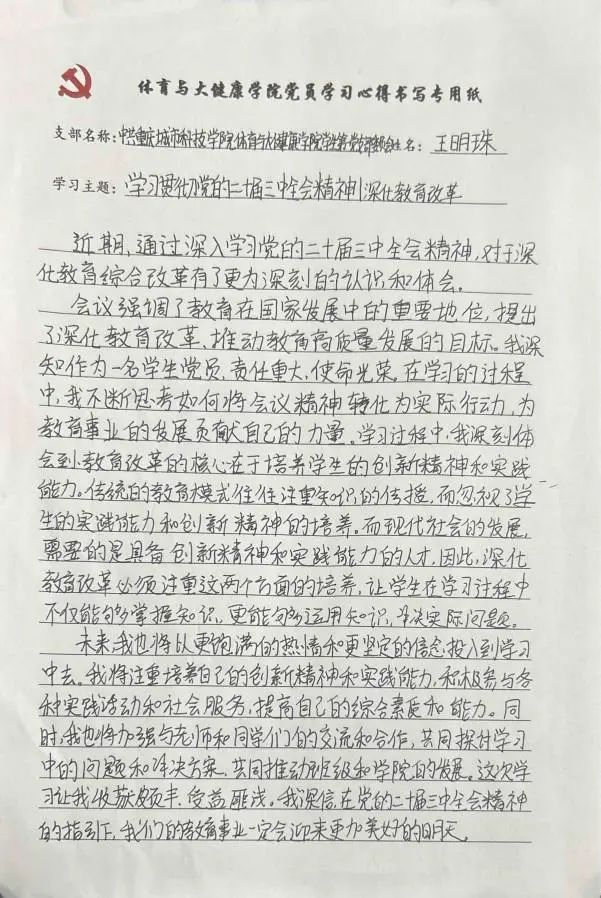 体育与大健康学院党员学习心得书写专用纸
支部名称:中共重庆城市科技学院体育与大健康学院学生第党支部委员会姓名:王明珠
学习主题:学习贯彻党的二十届三中全会精神|深化教育改革
近期,通过深入学习党的二十届三中全会精神,对于深
化教育综合改革有了更为深刻的认识和体会。
会议强调了教育在国家发展中的重要地位,提出
了深化教育改革、推动教育高质量发展的目标。我深
知作为一名学生党员,责任重大,使命光荣。在学习的过程
中,我不断思考如何将会议精神转化为实际行动,为
教育事业的发展贡献自己的力量。学习过程中,我深刻体
会到教育改革的核心在于培养学生的创新精神和实践
能力。传统的教育模式往往注重知识的传授,而忽视了学
生的实践能力和创新精神的培养。而现代社会的发展,
需要的是具备创新精神和实践能力的人才,因此,深化
教育改革必须注重这两个方面的培养,让学生在学习过程中
不仅能够掌握知识,更能够运用知识,解决实际问题。
未来,我也将以更饱满的热情和更坚定的信念投入到学习
中去。我将注重培养自己的创新精神和实践能力,积极参与各
种实践活动和社会服务,提高自己的综合素质和能力。同
时,我也将加强与老师和同学们的交流和合作,共同探讨学习
中的问题和解决方案,共同推动班级和学院的发展。这次学
习让我收获颇丰,受益匪浅。我深信,在党的二十届三中全会精神
的指引下,我们的教育事业一定会迎来更加美好的明天。